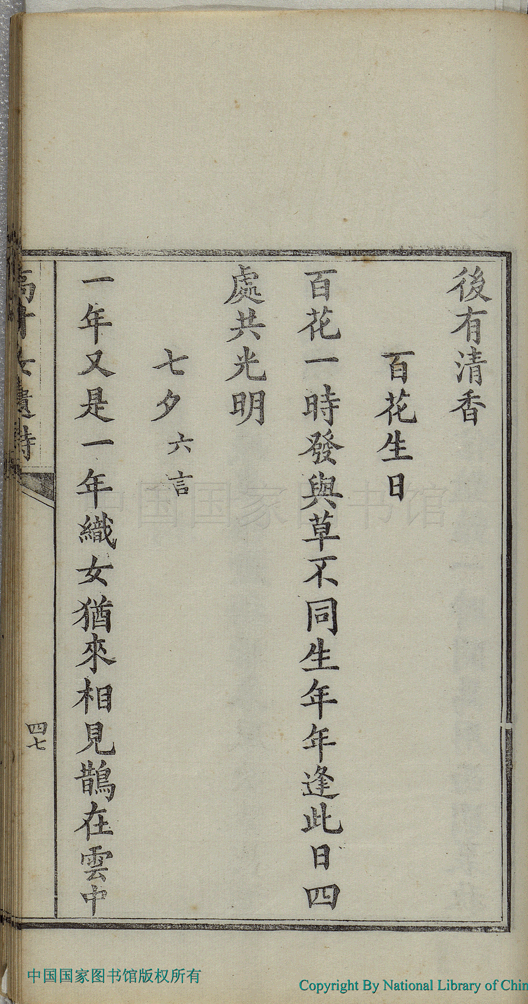 後有清香
百花生日
百花一時發與草不同生年年逢此日四
處共光明
七夕六言
一年又是一年織女猶來相見鵲在雲中
高才女遺詩
四七
中国国家图书馆
中国国家图书馆版权所有
Copyright By National Library of Chin